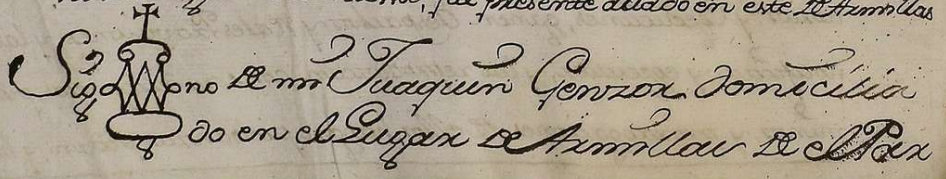 presente actado en este de Armillas
Sig no de mi Juaquin Genzor domicilia
do en el Lugar de Armillas de el Par